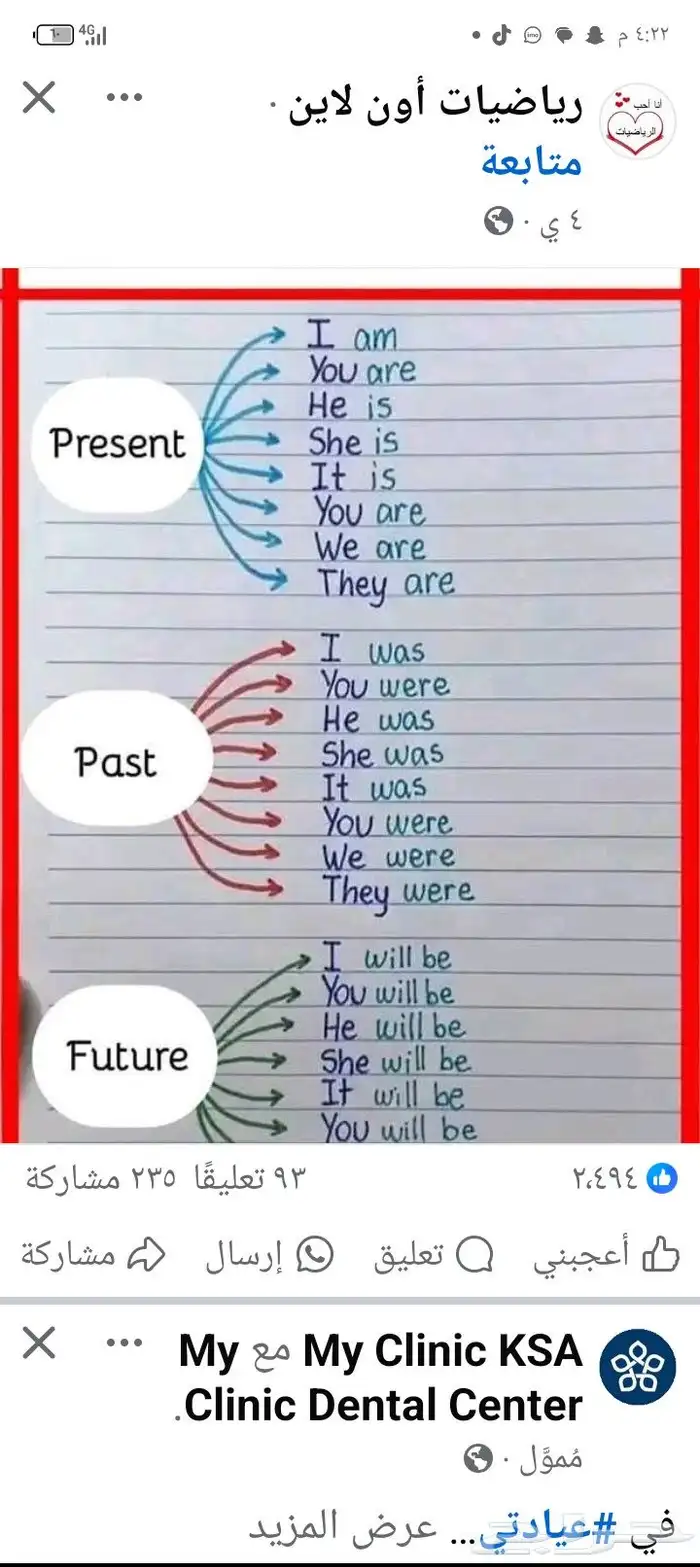 ٤:٢٢ م
imo
4G
٦٠
رياضيات أون لاين ·
أنا أحب
الرياضيات
متابعة
٤ ي ·
Present
I am
You are
He is
She is
It is
You are
We are
They are
Past
I was
You were
He was
She was
It was
You were
We were
They were
Future
I will be
You will be
He will be
She will be
It will be
You will be
٢،٤٩٤
٩٣ تعليقًا ٢٣٥ مشاركة
أعجبني
تعليق
إرسال
مشاركة
My Clinic KSA مع My
Clinic Dental Center.
مُموَّل ·
في #عيادتي... عرض المزيد